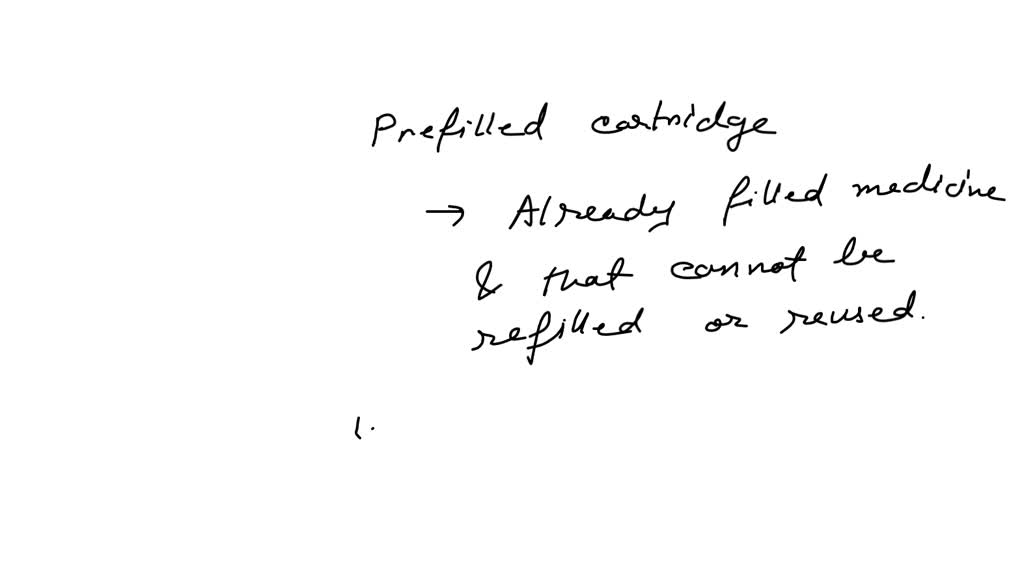 Prefilled cartridge
→ Already filled medicine
& that cannot be
refilled or reused.
1.